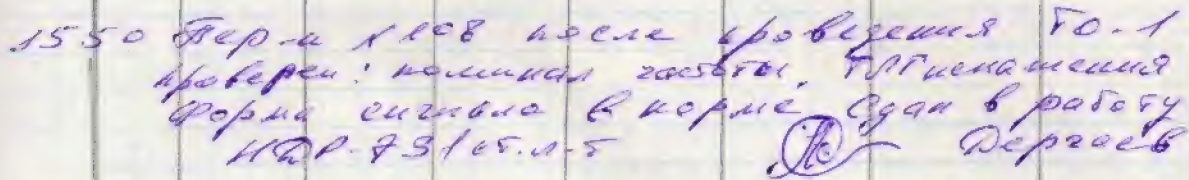 1550 Пер-к №108 после проведения ТО-1
проверен: номинал частоты, ТЛГ искажения
Форма сигнала в норме. Сдан в работу
НДР-731 ст. л-т Дергаев